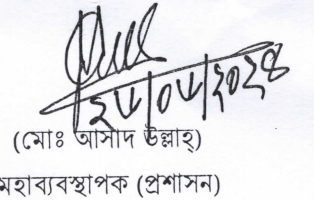 ২৮/০৮/২০২৪
(মোঃ আসাদ উল্লাহ)
মহাব্যবস্থাপক (প্রশাসন)